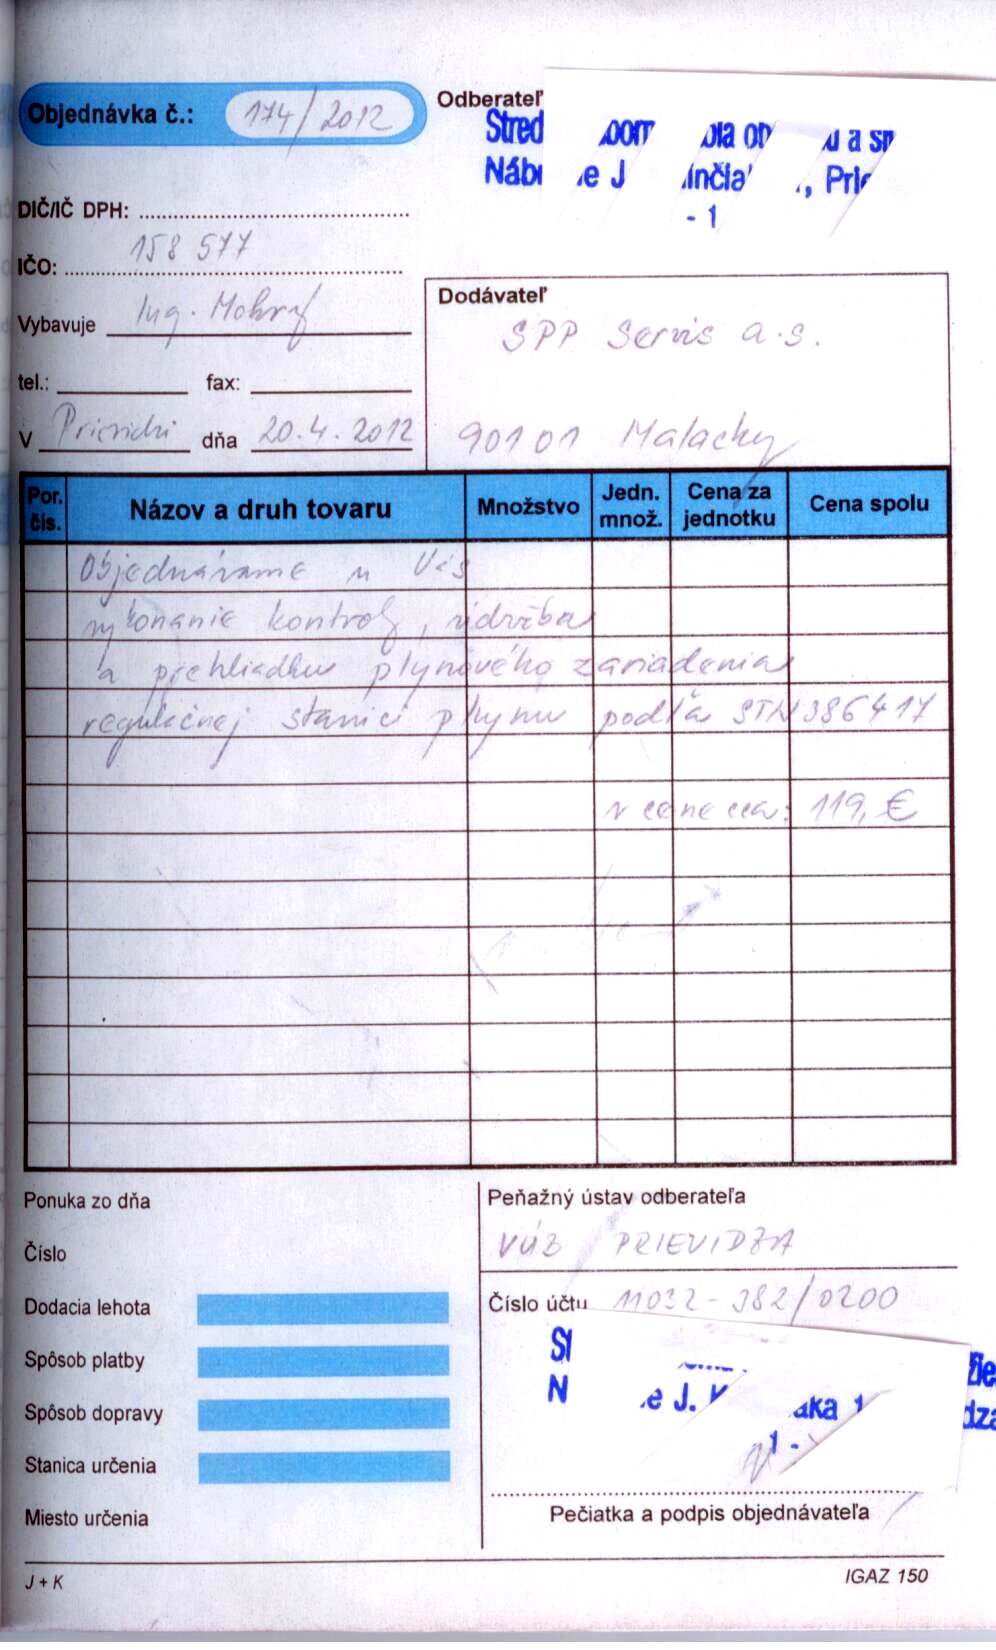 Objednávka č.: 174/2012
Odberateľ
Stred
Nábr J
- 1
DIČ/IČ DPH:
IČO: 158 577
Vybavuje Ing.
tel.: fax:
V dňa 20.4.2012
Dodávateľ
SPP Servis a.s.
90101 Malacky
Por. čís. Názov a druh tovaru Množstvo Jedn. množ. Cena za jednotku Cena spolu
Objednávame u Vás
vykonanie kontroly, údržba
a prehliadku plynového zariadenia
regulačnej stanici plynu podľa STN 386417
v cene cca: 119,€
Ponuka zo dňa
Číslo
Dodacia lehota
Spôsob platby
Spôsob dopravy
Stanica určenia
Miesto určenia
Peňažný ústav odberateľa
VÚB PRIEVIDZA
Číslo účtu 11032-382/0200
J.
1 -
Pečiatka a podpis objednávateľa
J + K
IGAZ 150